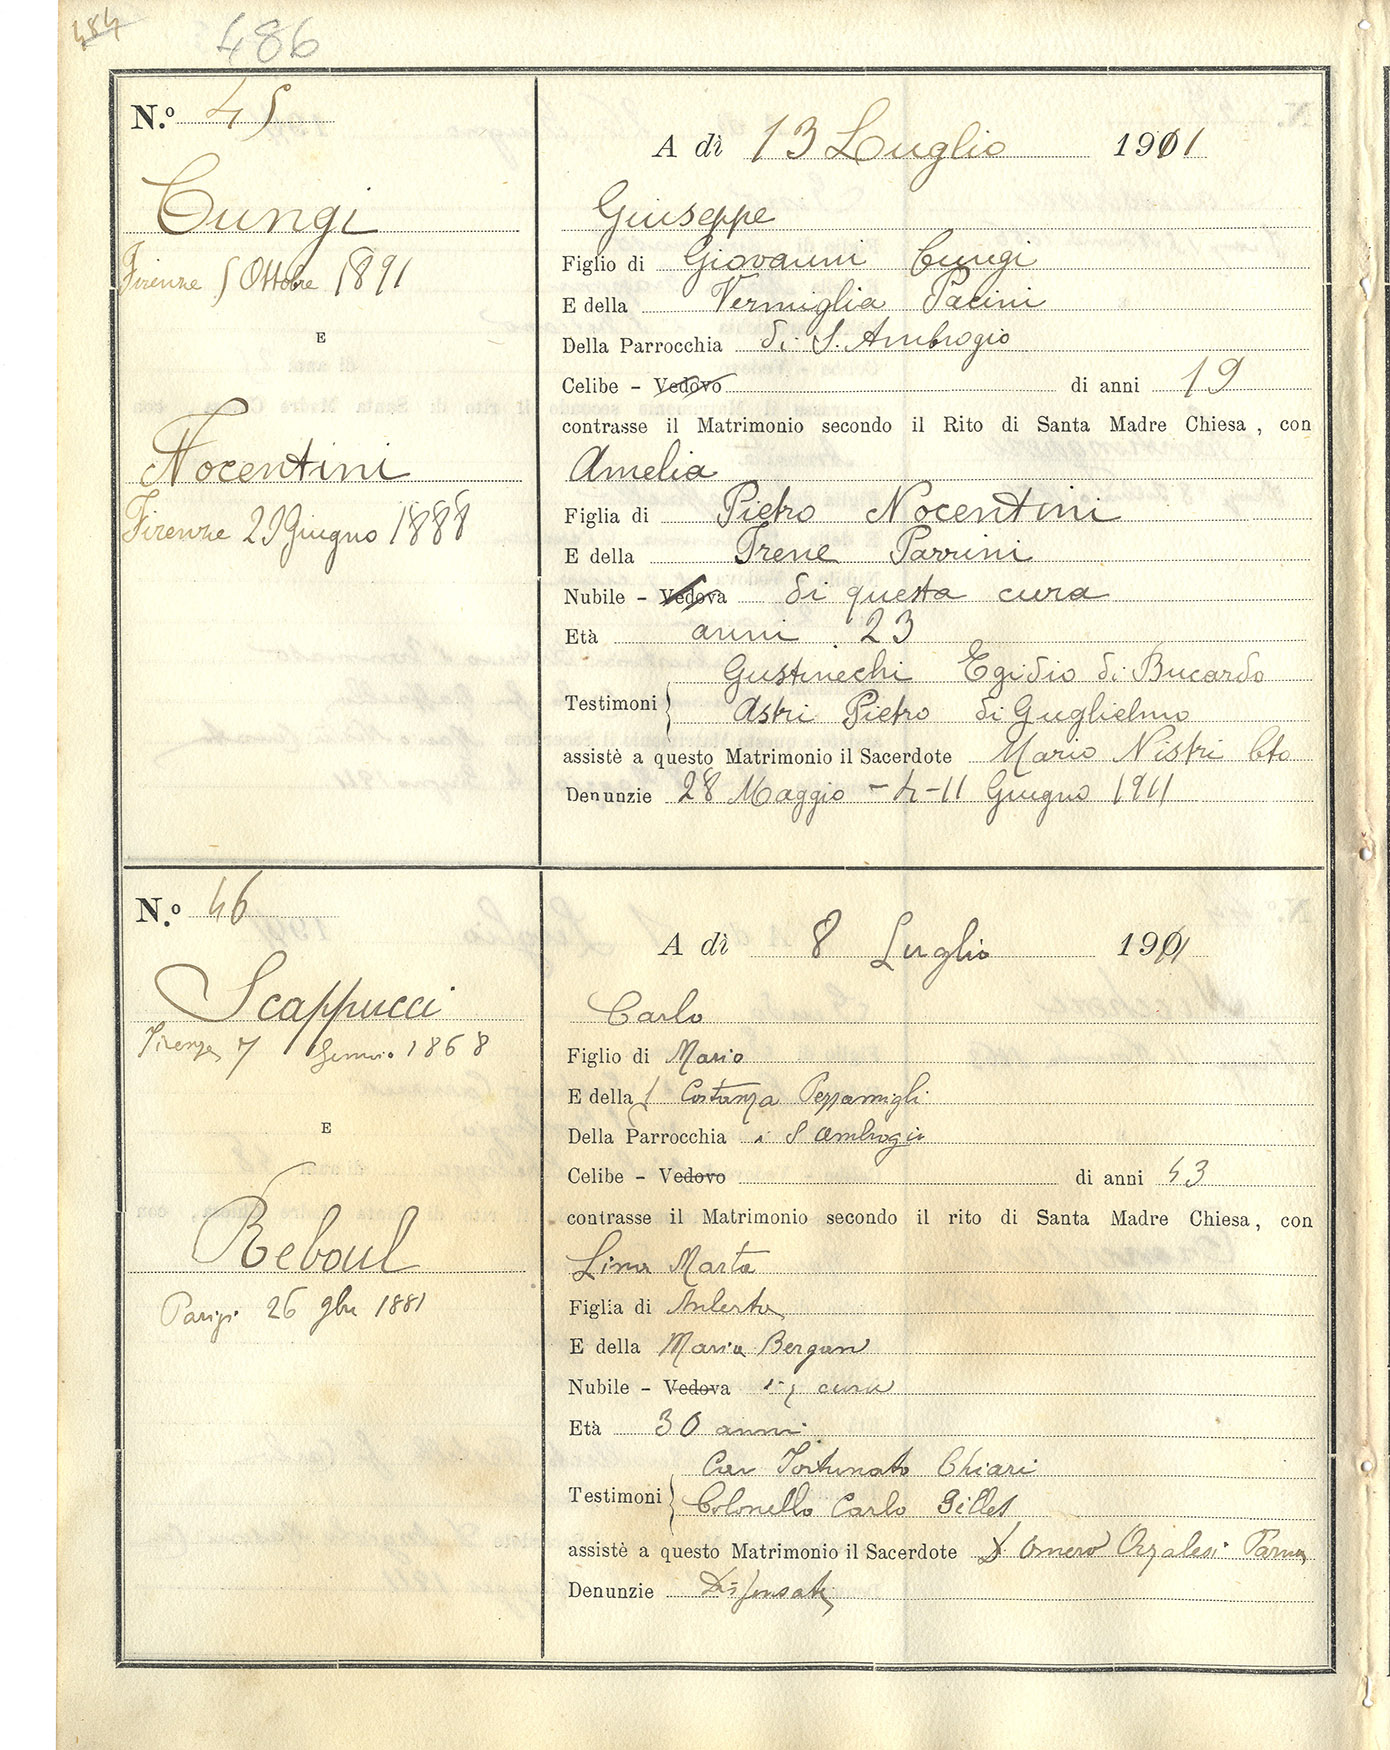 484
486
N.º 45
A dì 13 Luglio 1911
Cungi
Firenze 5 Ottobre 1891
E
Nocentini
Firenze 29 Giugno 1888
Giuseppe
Figlio di Giovanni Cungi
E della Vermiglia Pacini
Della Parrocchia di S. Ambrogio
Celibe - Vedovo di anni 19
contrasse il Matrimonio secondo il Rito di Santa Madre Chiesa, con
Amelia
Figlia di Pietro Nocentini
E della Irene Parrini
Nubile - Vedova di questa cura
Età anni 23
Testimoni Gustinechi Egidio di Bucardo
Astri Pietro di Guglielmo
assistè a questo Matrimonio il Sacerdote Mario Nistri
Denunzie 28 Maggio - 4 - 11 Giugno 1911
N.º 46
A dì 8 Luglio 1911
Scappucci
Firenze 7 Gennaio 1868
E
Reboul
Parigi 26 9bre 1881
Carlo
Figlio di Mario
E della Costanza
Della Parrocchia S Ambrogio
Celibe - Vedovo di anni 43
contrasse il Matrimonio secondo il rito di Santa Madre Chiesa, con
Lina Marta
Figlia di
E della Maria Bergan
Nubile - Vedova cura
Età 30 anni
Testimoni Cav Fortunato Chiari
Colonello Carlo Gilles
assistè a questo Matrimonio il Sacerdote D Omero Orzalesi
Denunzie Dispensate